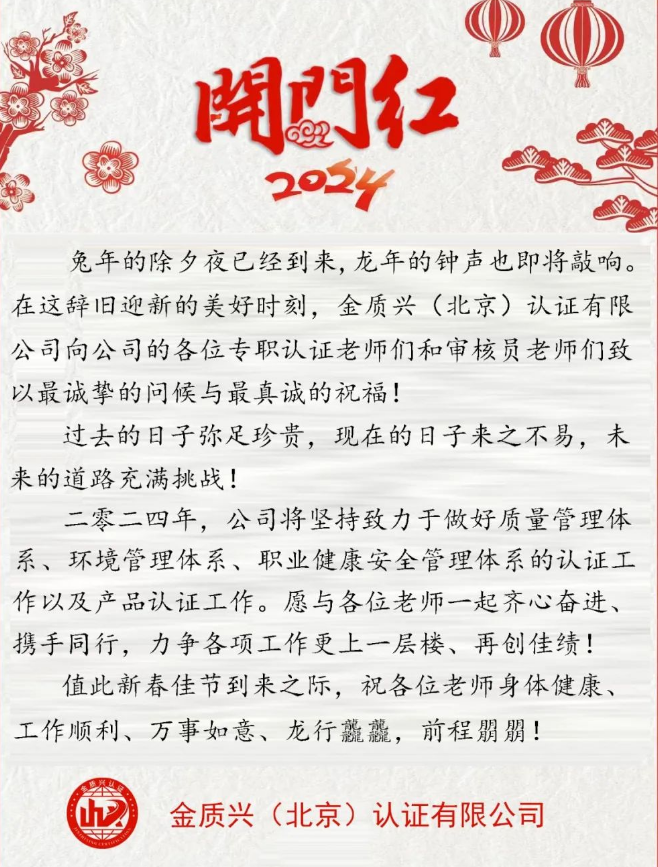 開門红
2024
兔年的除夕夜已经到来,龙年的钟声也即将敲响。
在这辞旧迎新的美好时刻，金质兴（北京）认证有限
公司向公司的各位专职认证老师们和审核员老师们致
以最诚挚的问候与最真诚的祝福！
过去的日子弥足珍贵，现在的日子来之不易，未
来的道路充满挑战！
二零二四年，公司将坚持致力于做好质量管理体
系、环境管理体系、职业健康安全管理体系的认证工
作以及产品认证工作。愿与各位老师一起齐心奋进、
携手同行，力争各项工作更上一层楼、再创佳绩！
值此新春佳节到来之际，祝各位老师身体健康、
工作顺利、万事如意、龙行龘龘，前程朤朤！
金质兴认证
金质兴（北京）认证有限公司